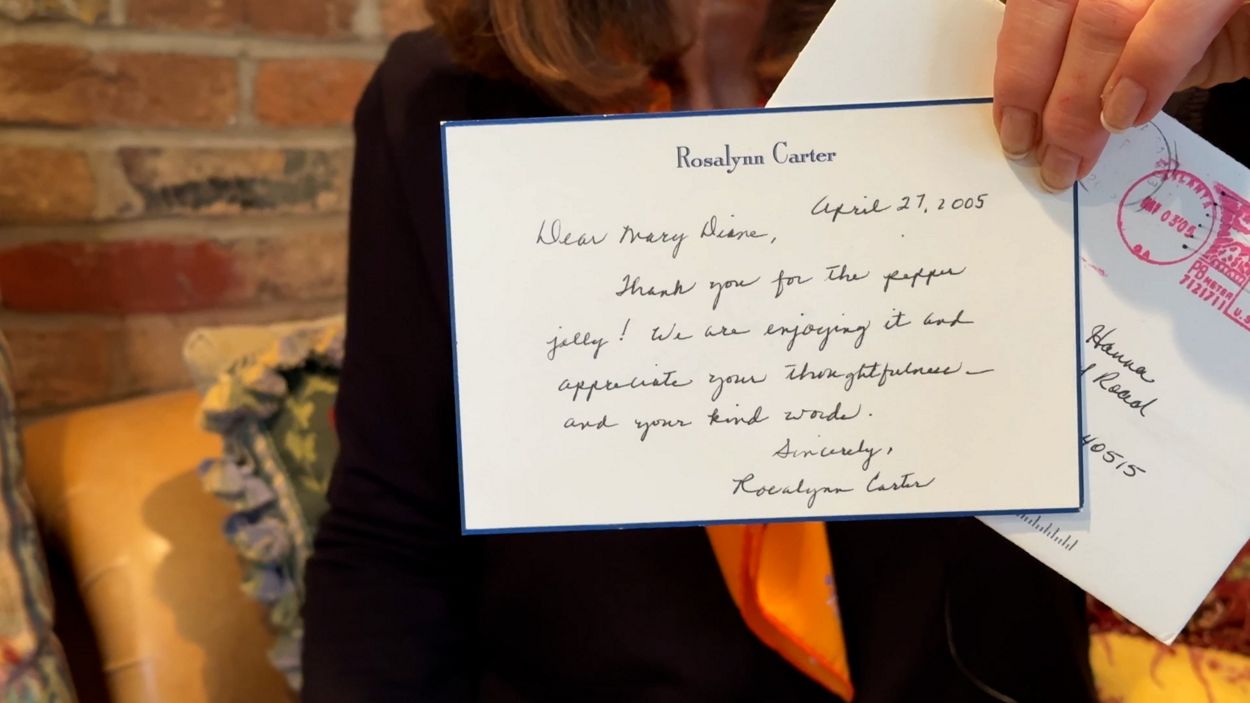 Rosalynn Carter
April 27, 2005
Dear Mary Diane,
Thank you for the pepper
jelly! We are enjoying it and
appreciate your thoughtfulness —
and your kind words.
Sincerely,
Rosalynn Carter
ATLANTA
MAY 03'05
GA
PB METER
7121711
U.S
Hanna
Road
40515